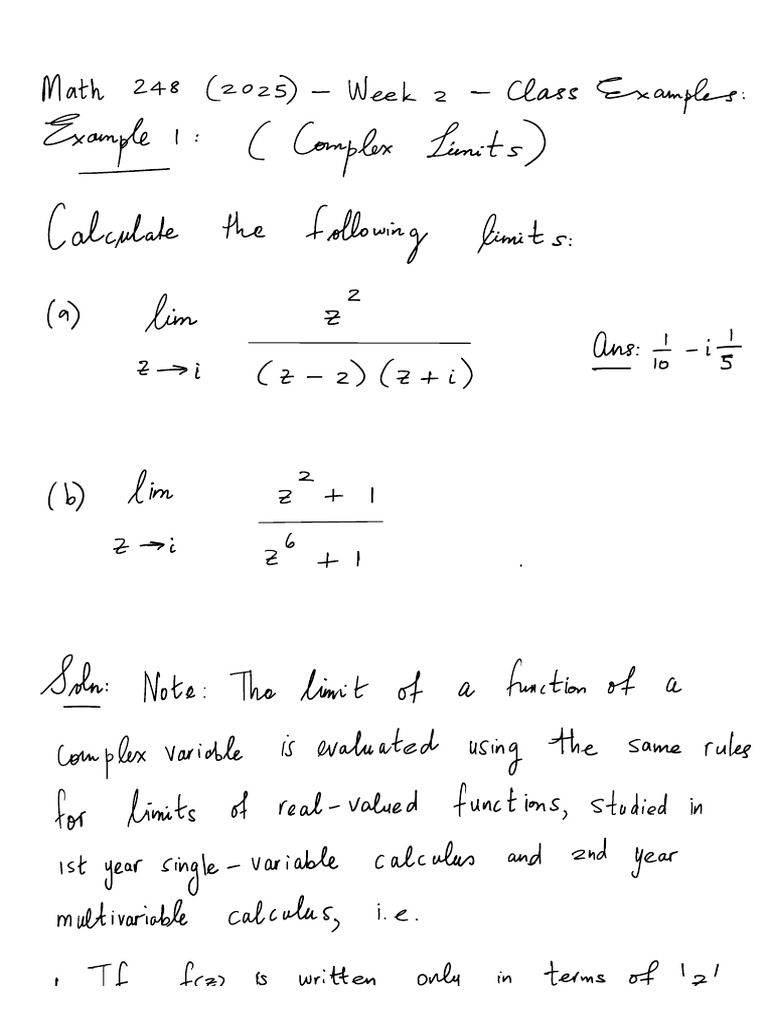 Math 248 (2025) – Week 2 – Class Examples:
Example 1: (Complex Limits)
Calculate the following limits:
(a) lim z→i z² / ((z – 2)(z + i)) Ans: 1/10 – i 1/5
(b) lim z→i (z² + 1) / (z⁶ + 1)
Soln: Note: The limit of a function of a
complex variable is evaluated using the same rules
for limits of real-valued functions, studied in
1st year single-variable calculus and 2nd year
multivariable calculus, i.e.
If f(z) is written only in terms of 'z'